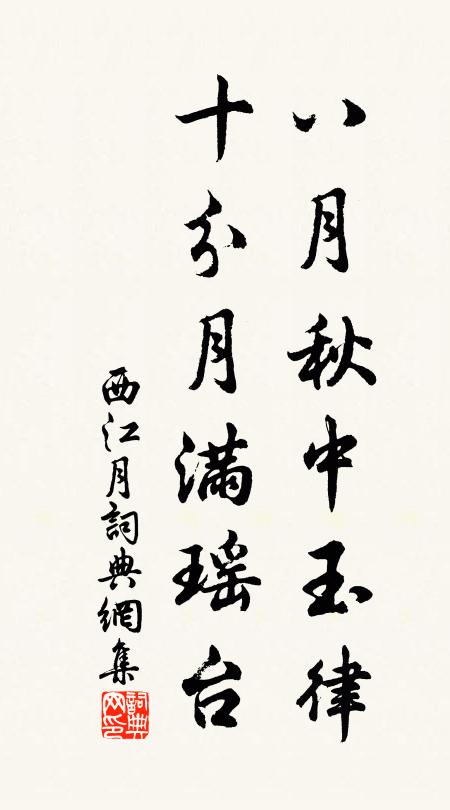 八月秋中玉律
十分月滿瑶台
西江月詞典網集
詞典网印